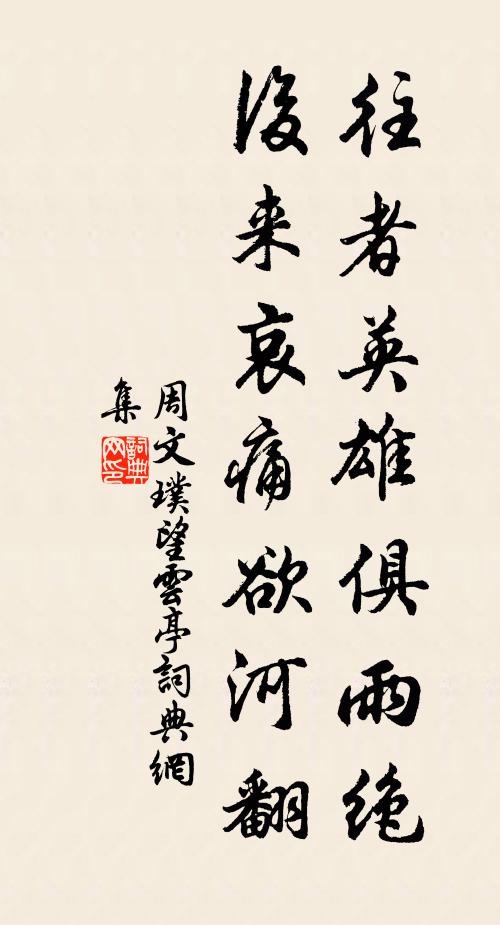 往者英雄俱雨绝
後来哀痛欲河翻
周文璞望雲亭詞典網
集
詞典网印